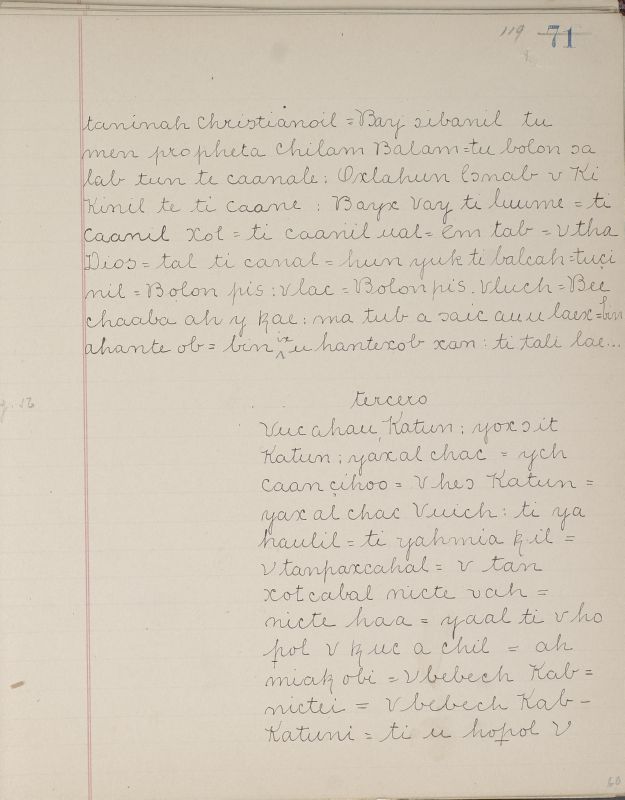 119 71
taninah christianoil = Bay ɔibanil tu
men propheta chilam Balam = tu bolon ɔa
lab tun te caanale : Oxlahun ɔnab v Ki
Kinil te ti caane : Bayx Vay ti luume = ti
caanil xol = ti caanil ual = Em tab = v tha
Dios = tal ti canal = hun yuk ti balcah = tuçi
nil = Bolon pis : v lac = Bolon pis . v luch = Bee
chaaba ah y ꝁae : ma tub a saic auulaex = bin
ahante ob = bin ix u hantexob xan : ti tali lae...
tercero
Vuc ahau Katun ; yoxɔit
Katun ; yaxal chac = ych
caan çihoo = V heɔ Katun =
yax al chac Vuich : ti ya
haulil = ti yahmia ꝁil =
v tanpaxcahal = v tan
xotcabal nicte vah =
nicte haa = yaal ti v ho
pol v ꝁuc a chil = ah
miaꝁ obi = V bebech Kab =
nictei = V bebech Kab -
Katuni = ti u hopol V
60